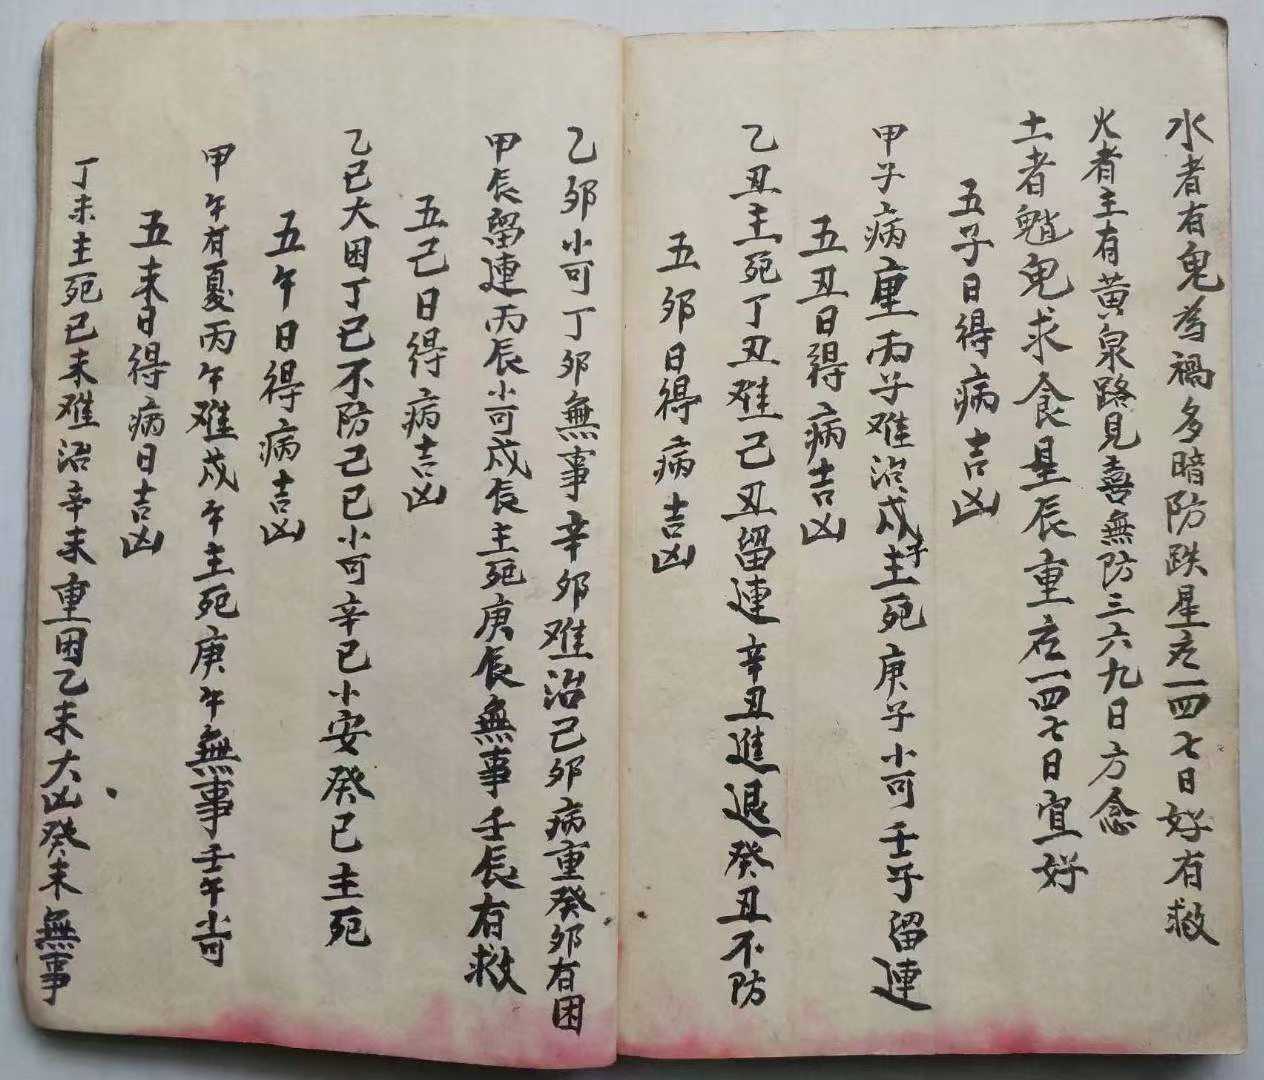 水者有鬼為禍多暗防跌星応一四七日好有救
火者主有黄泉路見喜無防三六九日方念
土者鬼求食星辰重応一四七日宜好
五子日得病吉凶
甲子病重丙子难治戊子主死庚子小可壬子留連
五丑日得病吉凶
乙丑主死丁丑难己丑留連辛丑進退癸丑不防
五卯日得病吉凶
乙卯小可丁卯無事辛卯难治己卯病重癸卯有困
甲辰留連丙辰小可戊辰主死庚辰無事壬辰有救
五己日得病吉凶
乙巳大困丁巳不防己巳小可辛巳小安癸巳主死
五午日得病吉凶
甲午有憂丙午难戊午主死庚午無事壬午小可
五未日得病日吉凶
丁未主死己未难治辛未重困乙未大凶癸未無事